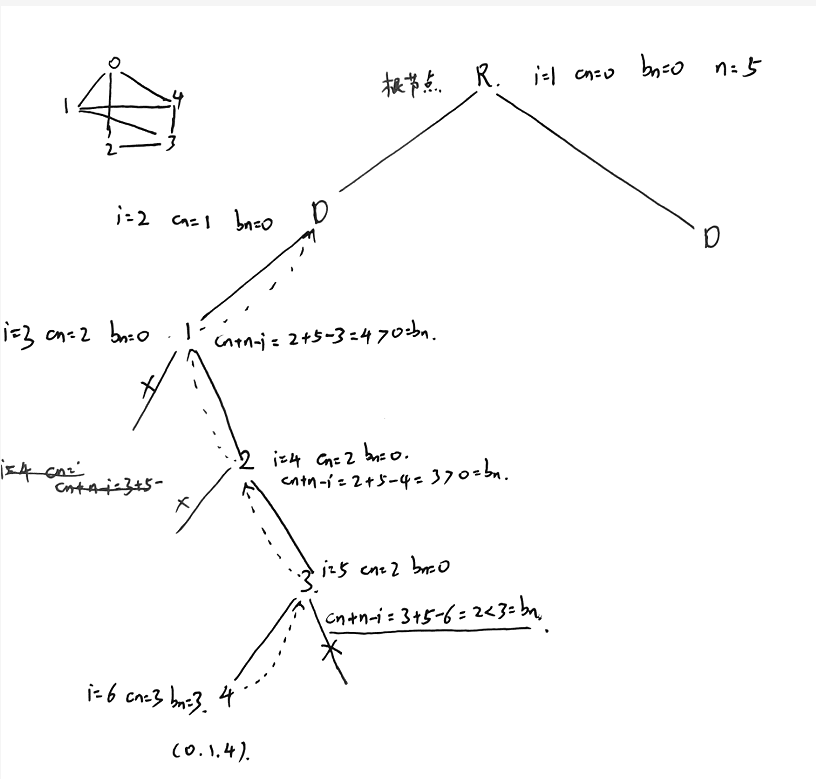 0
1
4
2
3
根节点. R. i=1 cn=0 bn=0 n=5
i=2 cn=1 bn=0 D
D
i=3 cn=2 bn=0 1 cn+n-i=2+5-3=4>0=bn.
x
2 i=4 cn=2 bn=0.
i=4 cn=
cn+n-i=3+5-
cn+n-i=2+5-4=3>0=bn.
x
3. i=5 cn=2 bn=0
cn+n-i=3+5-6=2<3=bn.
x
i=6 cn=3 bn=3. 4
(0.1.4).